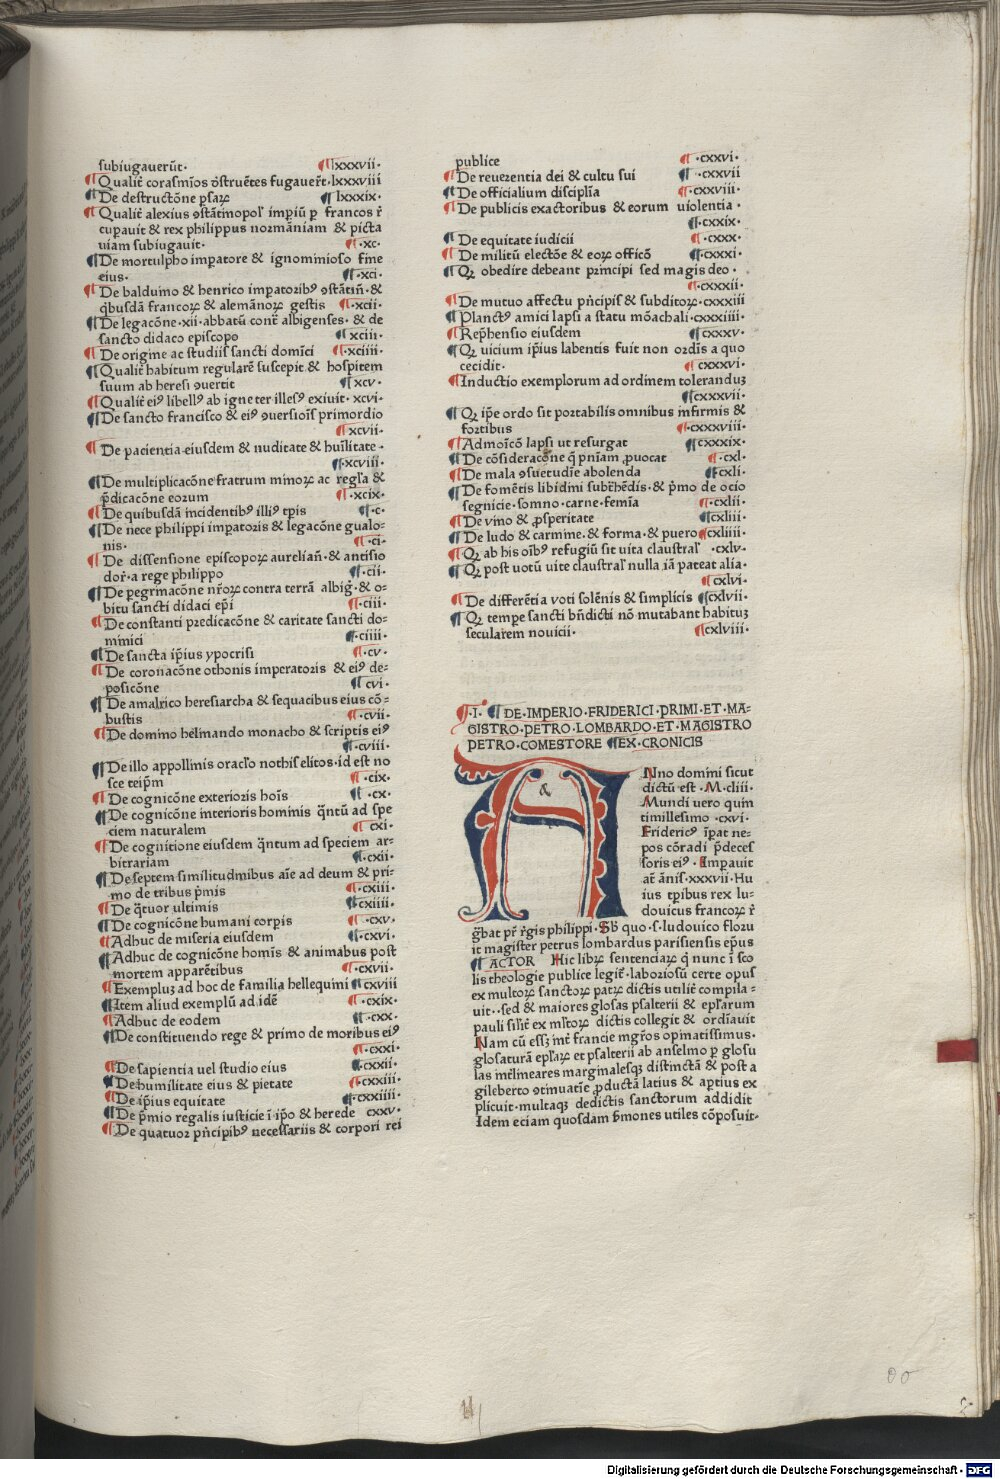 subiugauerūt· ¶lxxxvii·
¶Qualit̄ corasmīos ꝯstruētes fugauer̄t·lxxxviii
¶De destructōne ꝑsaꝝ ¶lxxxix·
¶Qualit̄ alexius ꝯstātinopol' impiū ꝑ francos r̄
cuꝑauit & rex philippus normāniam & picta
uiam subiugauit· ¶·xc·
¶De mortulpho imꝑatore & ignominioso fine
eius· ¶·xci·
¶De balduino & henrico imꝑatoribꝰ ꝯstātin̄·&
q̇busdā francoꝝ & alemānoꝝ gestis ¶·xcii·
¶De legacōne·xii·abbatū cont̄ albigenses·& de
sancto didaco episcopo ¶xciii·
¶De origine ac studiis sancti domīci ¶·xciiii·
¶Qualit̄ habitum regularē suscepit & hospitem
suum ab heresi ꝯuertit ¶xcv·
¶Qualit̄ eiꝰ libellꝰ ab igne ter illesꝰ exiuit·xcvi·
¶De sancto francisco & eiꝰ ꝯuersiois primordio
¶xcvii·
¶De pacientia eiusdem & nuditate & huīlitate·
¶·xcviii·
¶De multiplicacōne fratrum minoꝝ ac regl'a &
p̄dicacōne eorum ¶·xcix·
¶De quibusdā incidentibꝰ illiꝰ tp̄is ¶·c·
¶De nece philippi imꝑatoris & legacōne gualo-
nis· ¶·ci·
¶De dissensione episcopoꝝ aurelian̄·& antisio
dor̄·a rege philippo ¶·cii·
¶De ꝑegrinacōne nr̄oꝝ contra terrā albiḡ·& o-
bitu sancti didaci ep̄i ¶·ciii·
¶De constanti predicacōne & caritate sancti do-
minici ¶·ciiii·
¶De sancta ip̄ius ypocrisi ¶·cv·
¶De coronacōne othonis imperatoris & eiꝰ de-
posicōne ¶cvi·
¶De amalrico heresiarcha & sequacibus eius cō-
bustis ¶·cvii·
¶De domino helinando monacho & scriptis eiꝰ
¶·cviii·
¶De illo appollinis oracl'o nothis elitos·id est no
sce teip̄m ¶·cix·
¶De cognicōne exterioris hoīs ¶·cx·
¶De cognicōne interioris hominis q̄ntū ad spe
ciem naturalem ¶cxi·
¶De cognitione eiusdem q̄ntum ad speciem ar-
bitrariam ¶·cxii·
¶De septem similitudinibus aīe ad deum & pri-
mo de tribus p̄mis ¶·cxiii·
¶De q̄tuor ultimis ¶cxiiii·
¶De cognicōne humani corꝑis ¶·cxv·
¶Adhuc de miseria eiusdem ¶·cxvi·
¶Adhuc de cognicōne homīs & animabus post
mortem apparētibus ¶·cxvii·
¶Exempluꝫ ad hoc de familia hellequini ¶cxviii
¶Item aliud exemplū ad idē ¶·cxix·
¶Adhuc de eodem ¶·cxx·
¶De constituendo rege & primo de moribus eiꝰ
¶·cxxi·
¶De sapientia uel studio eius ¶cxxii·
¶De humilitate eius & pietate ¶·cxxiii·
¶De ip̄ius equitate ¶·cxxiiii·
¶De p̄mio regalis iusticie ī ip̄o & herede cxxv·
¶De quatuor p̄ncipibꝰ necessariis & corpori rei
publice ¶·cxxvi·
¶De reuerentia dei & cultu sui ¶·cxxvii
¶De officialium disciplīa ¶·cxxviii·
¶De publicis exactoribus & eorum uiolentia·
¶·cxxix·
¶De equitate iudicii ¶·cxxx·
¶De militū electōe & eoꝝ officō ¶·cxxxi·
¶Qꝫ obedire debeant principi sed magis deo·
¶·cxxxii·
¶De mutuo affectu p̄ncipis & subditoꝝ·cxxxiii
¶Planctꝰ amici lapsi a statu mōachali·cxxxiiii·
¶Rep̄hensio eiusdem ¶cxxxv·
¶Qꝫ uicium ip̄ius labentis fuit non ordīs a quo
cecidit· ¶cxxxvi·
¶Inductio exemplorum ad ordinem toleranduꝫ
¶cxxxvii·
¶Qꝫ ip̄e ordo sit portabilis omnibus infirmis &
fortibus ¶·cxxxviii·
¶Admoīcō lapsi ut resurgat ¶cxxxix·
¶De cōsideracōne q̄ pn̄iam ꝓuocat ¶·cxl·
¶De mala ꝯsuetudīe abolenda ¶cxli·
¶De fomētis libidini subt̄hēdis·& p̄mo de ocio
segnicie·somno·carne·femīa ¶·cxlii·
¶De vino & ꝓsperitate ¶cxliii·
¶De ludo & carmine·& forma·& puero¶cxliiii·
¶Qꝫ ab his oībꝰ refugiū sit uita claustral' ·cxlv·
¶Qꝫ post uotū uite claustral' nulla iā pateat alia·
¶cxlvi·
¶De differētia voti solēnis & simplicis ¶cxlvii·
¶Qꝫ tempe sancti bn̄dicti nō mutabant habituꝫ
secularem nouicii· ¶cxlviii·
¶·I· ¶DE·IMPERIO·FRIDERICI·PRIMI·ET·MA-
GISTRO·PETRO·LOMBARDO·ET·MAGISTRO
PETRO·COMESTORE ¶EX·CRONICIS
ANno domini sicut
dictū est·M·cliii·
Mundi uero quin
timillesimo·cxvi·
Fridericꝰ īpat ne-
pos cōradi p̄deces
soris eiꝰ·Impauit
at̄ ānis·xxxvii·Hu
ius tꝑibus rex lu-
douicus francoꝝ r̄
ḡbat pr̄ r̄gis philippi·Sb̄ quo·s·ludouico floru
it magister petrus lombardus parisiensis ep̄us
¶ACTOR Hic libꝝ sentenciaꝝ q̄ nunc ī sco
lis theologie publice legit̄·laboriosū certe opus
ex multoꝝ sanctoꝝ patꝝ dictis utilit̄ compila-
uit··sed & maiores glosas psalterii & ep̄larum
pauli sil'it̄ ex ml'toꝝ dictis collegit & ordīauit
Nam cū essꝫ int̄ francie mgr̄os opinatissimus·
glosaturā ep̄laꝝ et psalterii ab anselmo ꝑ glosu
las int̄lineares marginalesqꝫ distinctā & post a
gileberto ꝯtinuatīe ꝓductā latius & aptius ex
plicuit·multaqꝫ dedictis sanctorum addidit
Idem eciam quosdam s̄mones utiles cōposuit·
Digitalisierung gefördert durch die Deutsche Forschungsgemeinschaft · DFG